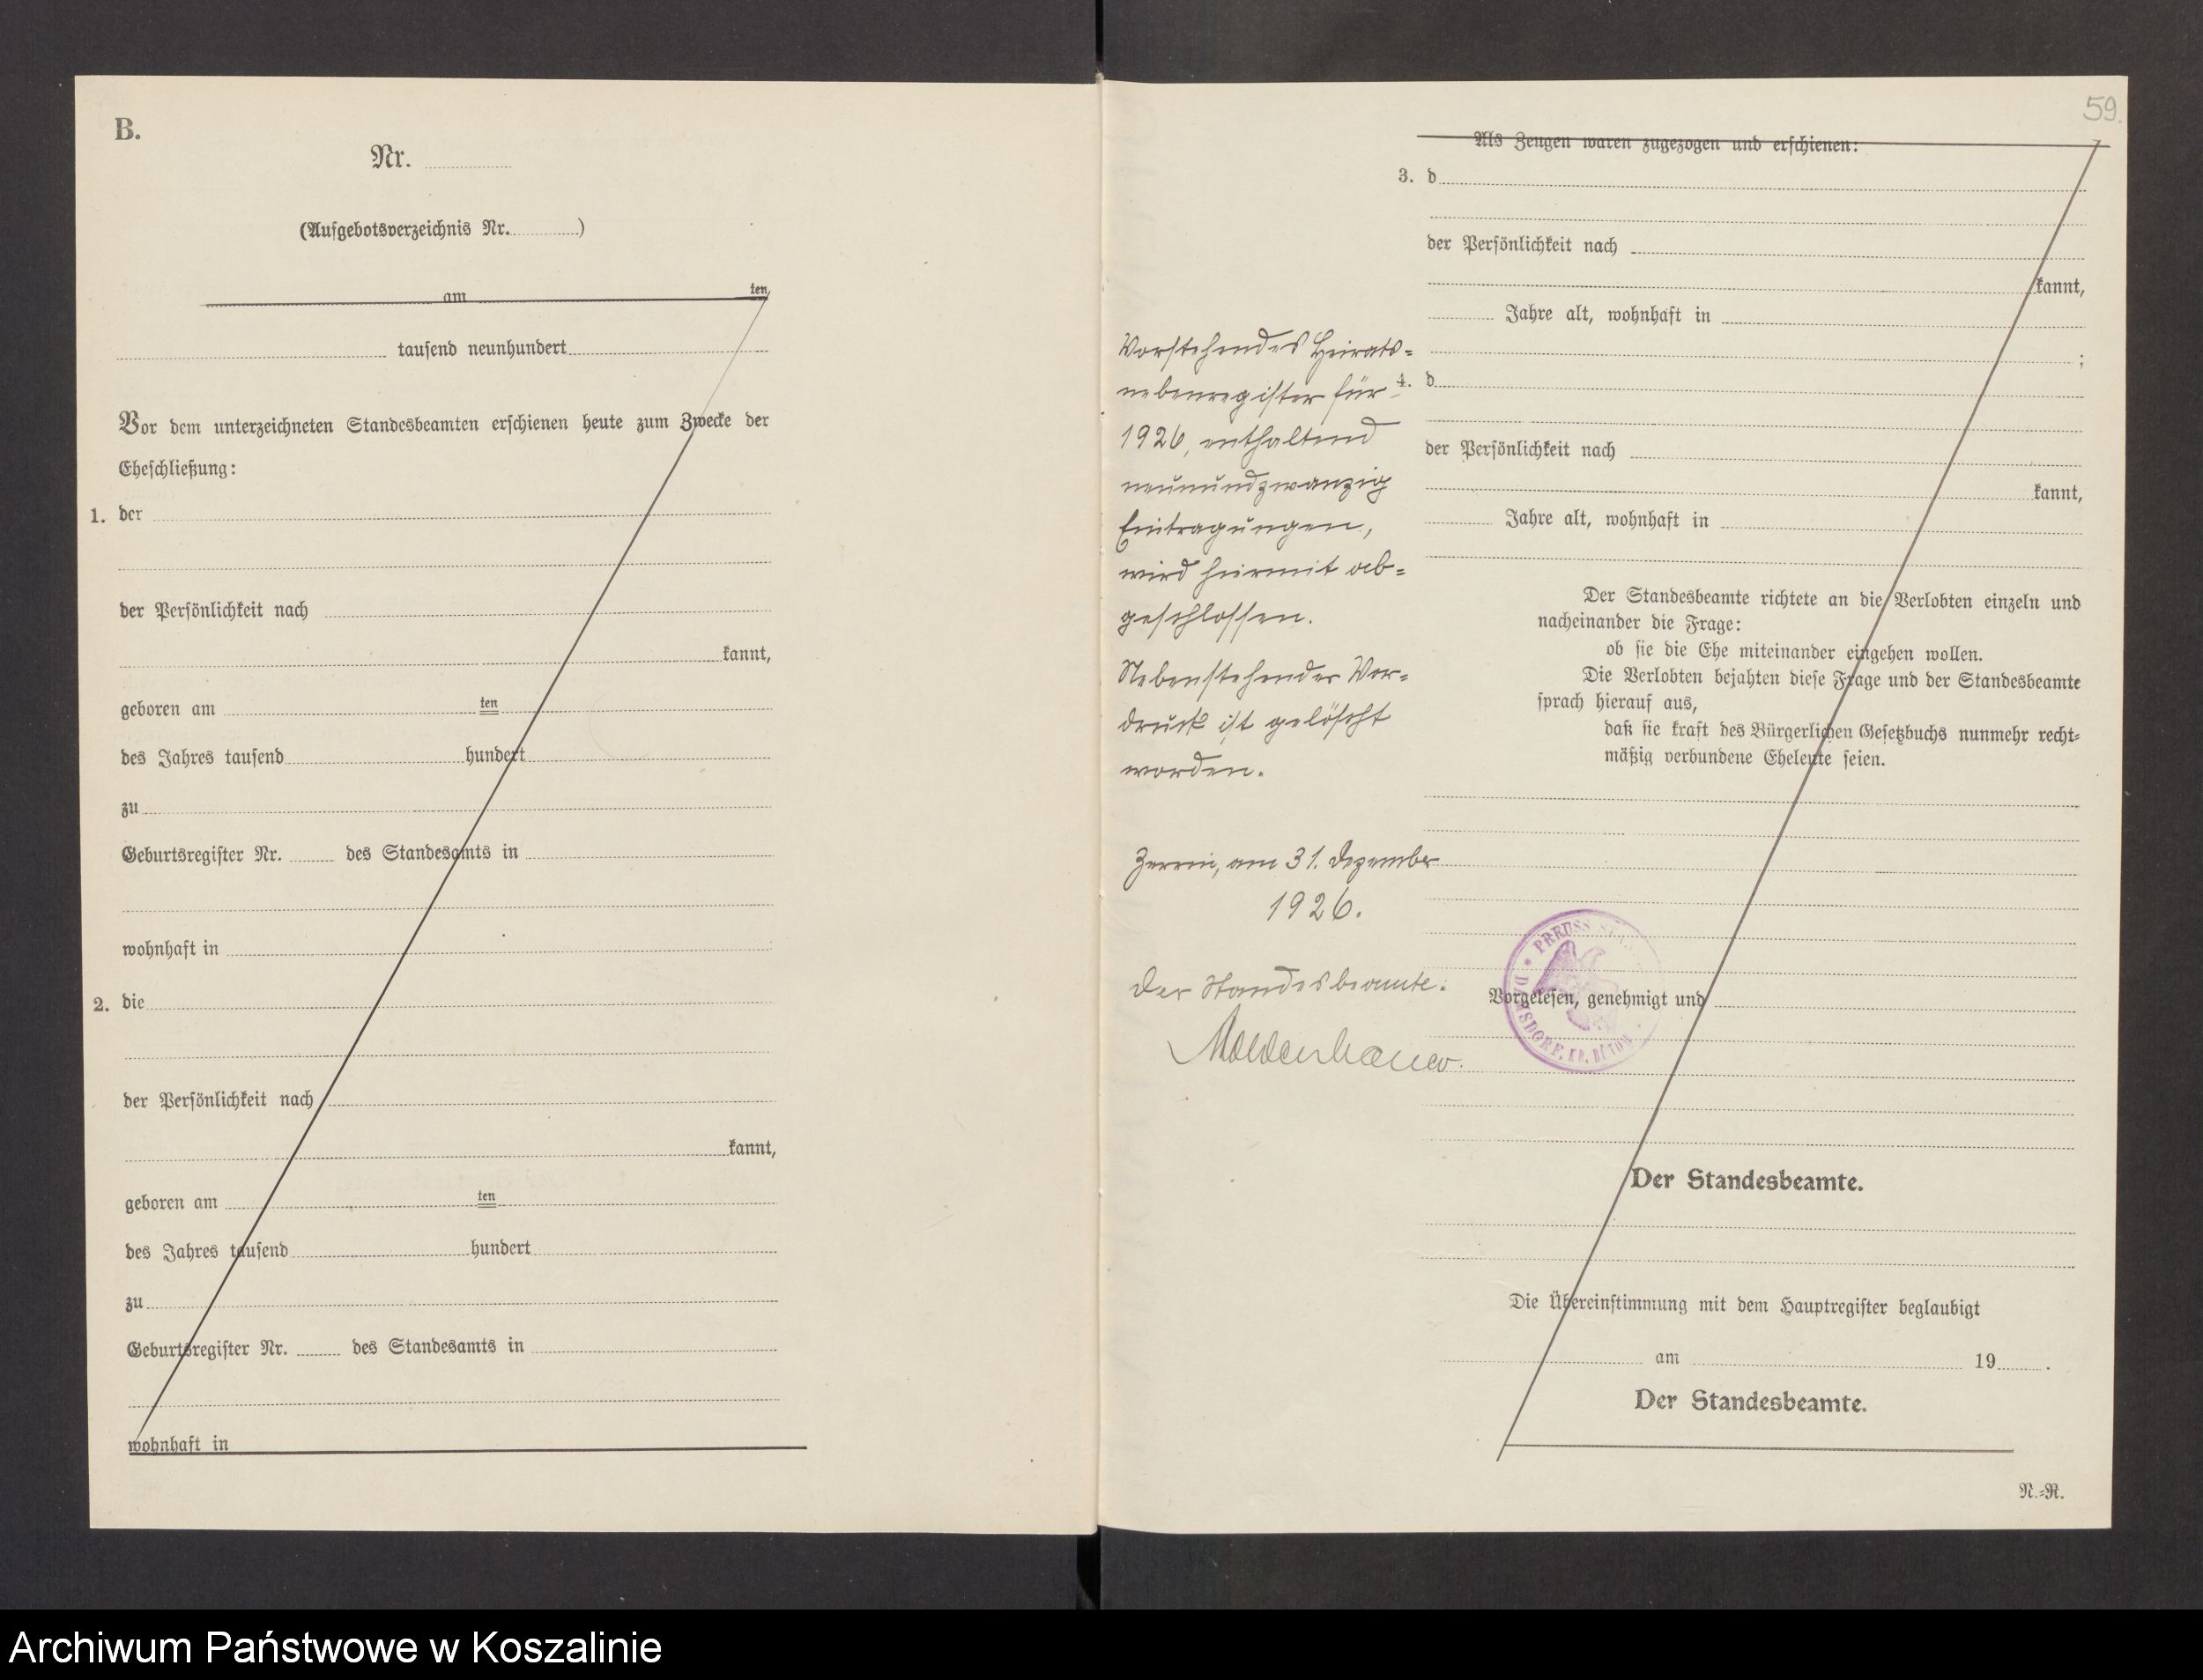 B.
Nr.
(Aufgebotsverzeichnis Nr. )
am ten
tausend neunhundert
Vor dem unterzeichneten Standesbeamten erschienen heute zum Zwecke der
Eheschließung:
1. der
der Persönlichkeit nach
kannt,
geboren am ten
des Jahres tausend hundert
zu
Geburtsregister Nr. des Standesamts in
wohnhaft in
2. die
der Persönlichkeit nach
kannt,
geboren am ten
des Jahres tausend hundert
zu
Geburtsregister Nr. des Standesamts in
wohnhaft in
59.
Als Zeugen waren zugezogen und erschienen:
3. d
der Persönlichkeit nach
kannt,
Jahre alt, wohnhaft in
;
4. d
der Persönlichkeit nach
kannt,
Jahre alt, wohnhaft in
Der Standesbeamte richtete an die Verlobten einzeln und
nacheinander die Frage:
ob sie die Ehe miteinander eingehen wollen.
Die Verlobten bejahten diese Frage und der Standesbeamte
sprach hierauf aus,
daß sie kraft des Bürgerlichen Gesetzbuchs nunmehr recht-
mäßig verbundene Eheleute seien.
Vorstehendes Heirats-
nebenregister für
1926, enthaltend
neunundzwanzig
Eintragungen,
wird hiermit ab-
geschlossen.
Nebenstehender Vor-
druck ist gelöscht
worden.
Zerrin, am 31. Dezember
1926.
Der Standesbeamte.
Moldenhauer.
PREUSS
KR. BÜTOW
Vorgelesen, genehmigt und
Der Standesbeamte.
Die Übereinstimmung mit dem Hauptregister beglaubigt
am 19 .
Der Standesbeamte.
N.-R.
Archiwum Państwowe w Koszalinie